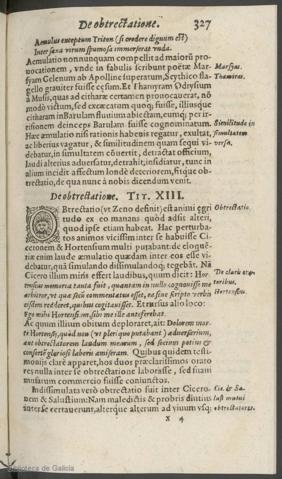 De obtrectatione. 327
Aemulus exceptum Triton (si credere dignum est)
Inter saxa virum spumosa immerserat vnda.
Aemulatio nonnunquam compellit ad maiorũ pro-
uocationem, vnde in fabulis scribunt poetæ Mar- Marsyas.
syam Gelenum ab Apolline superatum, Scythico fla- Thamiras.
gello grauiter fuisse cęsum. Et Thamyram Odrysium
à Musis, quas ad citharæ certamen prouocauerat, nõ
modò victum, sed excæcatum quoq; fuisse, illiusque
citharam in Barulam fluuium abiectam, eumq; per ir-
risionem deinceps Barulam fuisse cognominatum. Similitudo in
Hæc æmulatio nisi rationis habenis regatur, exultat, simultatem
ac liberius vagatur, & similitudinem quam sequi vi- versa.
debatur, in simultatem cõuerit, detractat officium,
laudi alterius aduersatur, detrahit, insidiatur, tunc in
alium incidit affectum londè deteriorem, fitque ob-
trectatio, de qua nunc à nobis dicendum venit.
De obtrectatione. TIT. XIII.
OBtrectatio (vt Zeno definit) est animi ęgri Obtrectatio.
tudo ex eo manans quòd adsit alteri,
quod ipse etiam habeat. Hac perturba-
tos animos vicissim inter se habuisse Ci-
ceronem & Hortensium multi putabant: de eloquẽ-
tiæ enim laude æmulatio quædam inter eos esse vi-
debatur, quã simulando dissimulandoq; tegebãt. Nã
Cicero illum miris effert laudibus, quum dicit: Hor- De claris ora
tensius memoria tanta fuit, quantam in nullo cognouisse me toribus,
arbitror, vt quæ secũ commentatus esset, ea sine scripto verbis Hortensius.
eisdem redderet, quibus cogitauisset. Et rursus alio loco:
Ego mihi Hortensiũ multis de me ille anteferebat.
Ac quum illium obitum deploraret, ait: Dolorem mor-
te Hortensij, quòd non (vt plerique putabant) aduersarium,
aut obtrectatorem laudum mearum, sed socium potius &
consortẽ gloriosi laboris amiseram. Quibus quidem testi-
monijs clarè apparet, hos duos præclarissimos orato
res nulla inter se obtrectatione laborasse, sed suaui
musarum commercio fuisse coniunctos.
Indissimulata verò obtrectatio fuit inter Cicero- Cic. & Sa-
nem & Salustium: Nam maledictis & probris diutius lust mutui
inter se certauerunt, alterque alterum ad viuum vsq; obtrectatores.
X 4
Biblioteca de Galicia